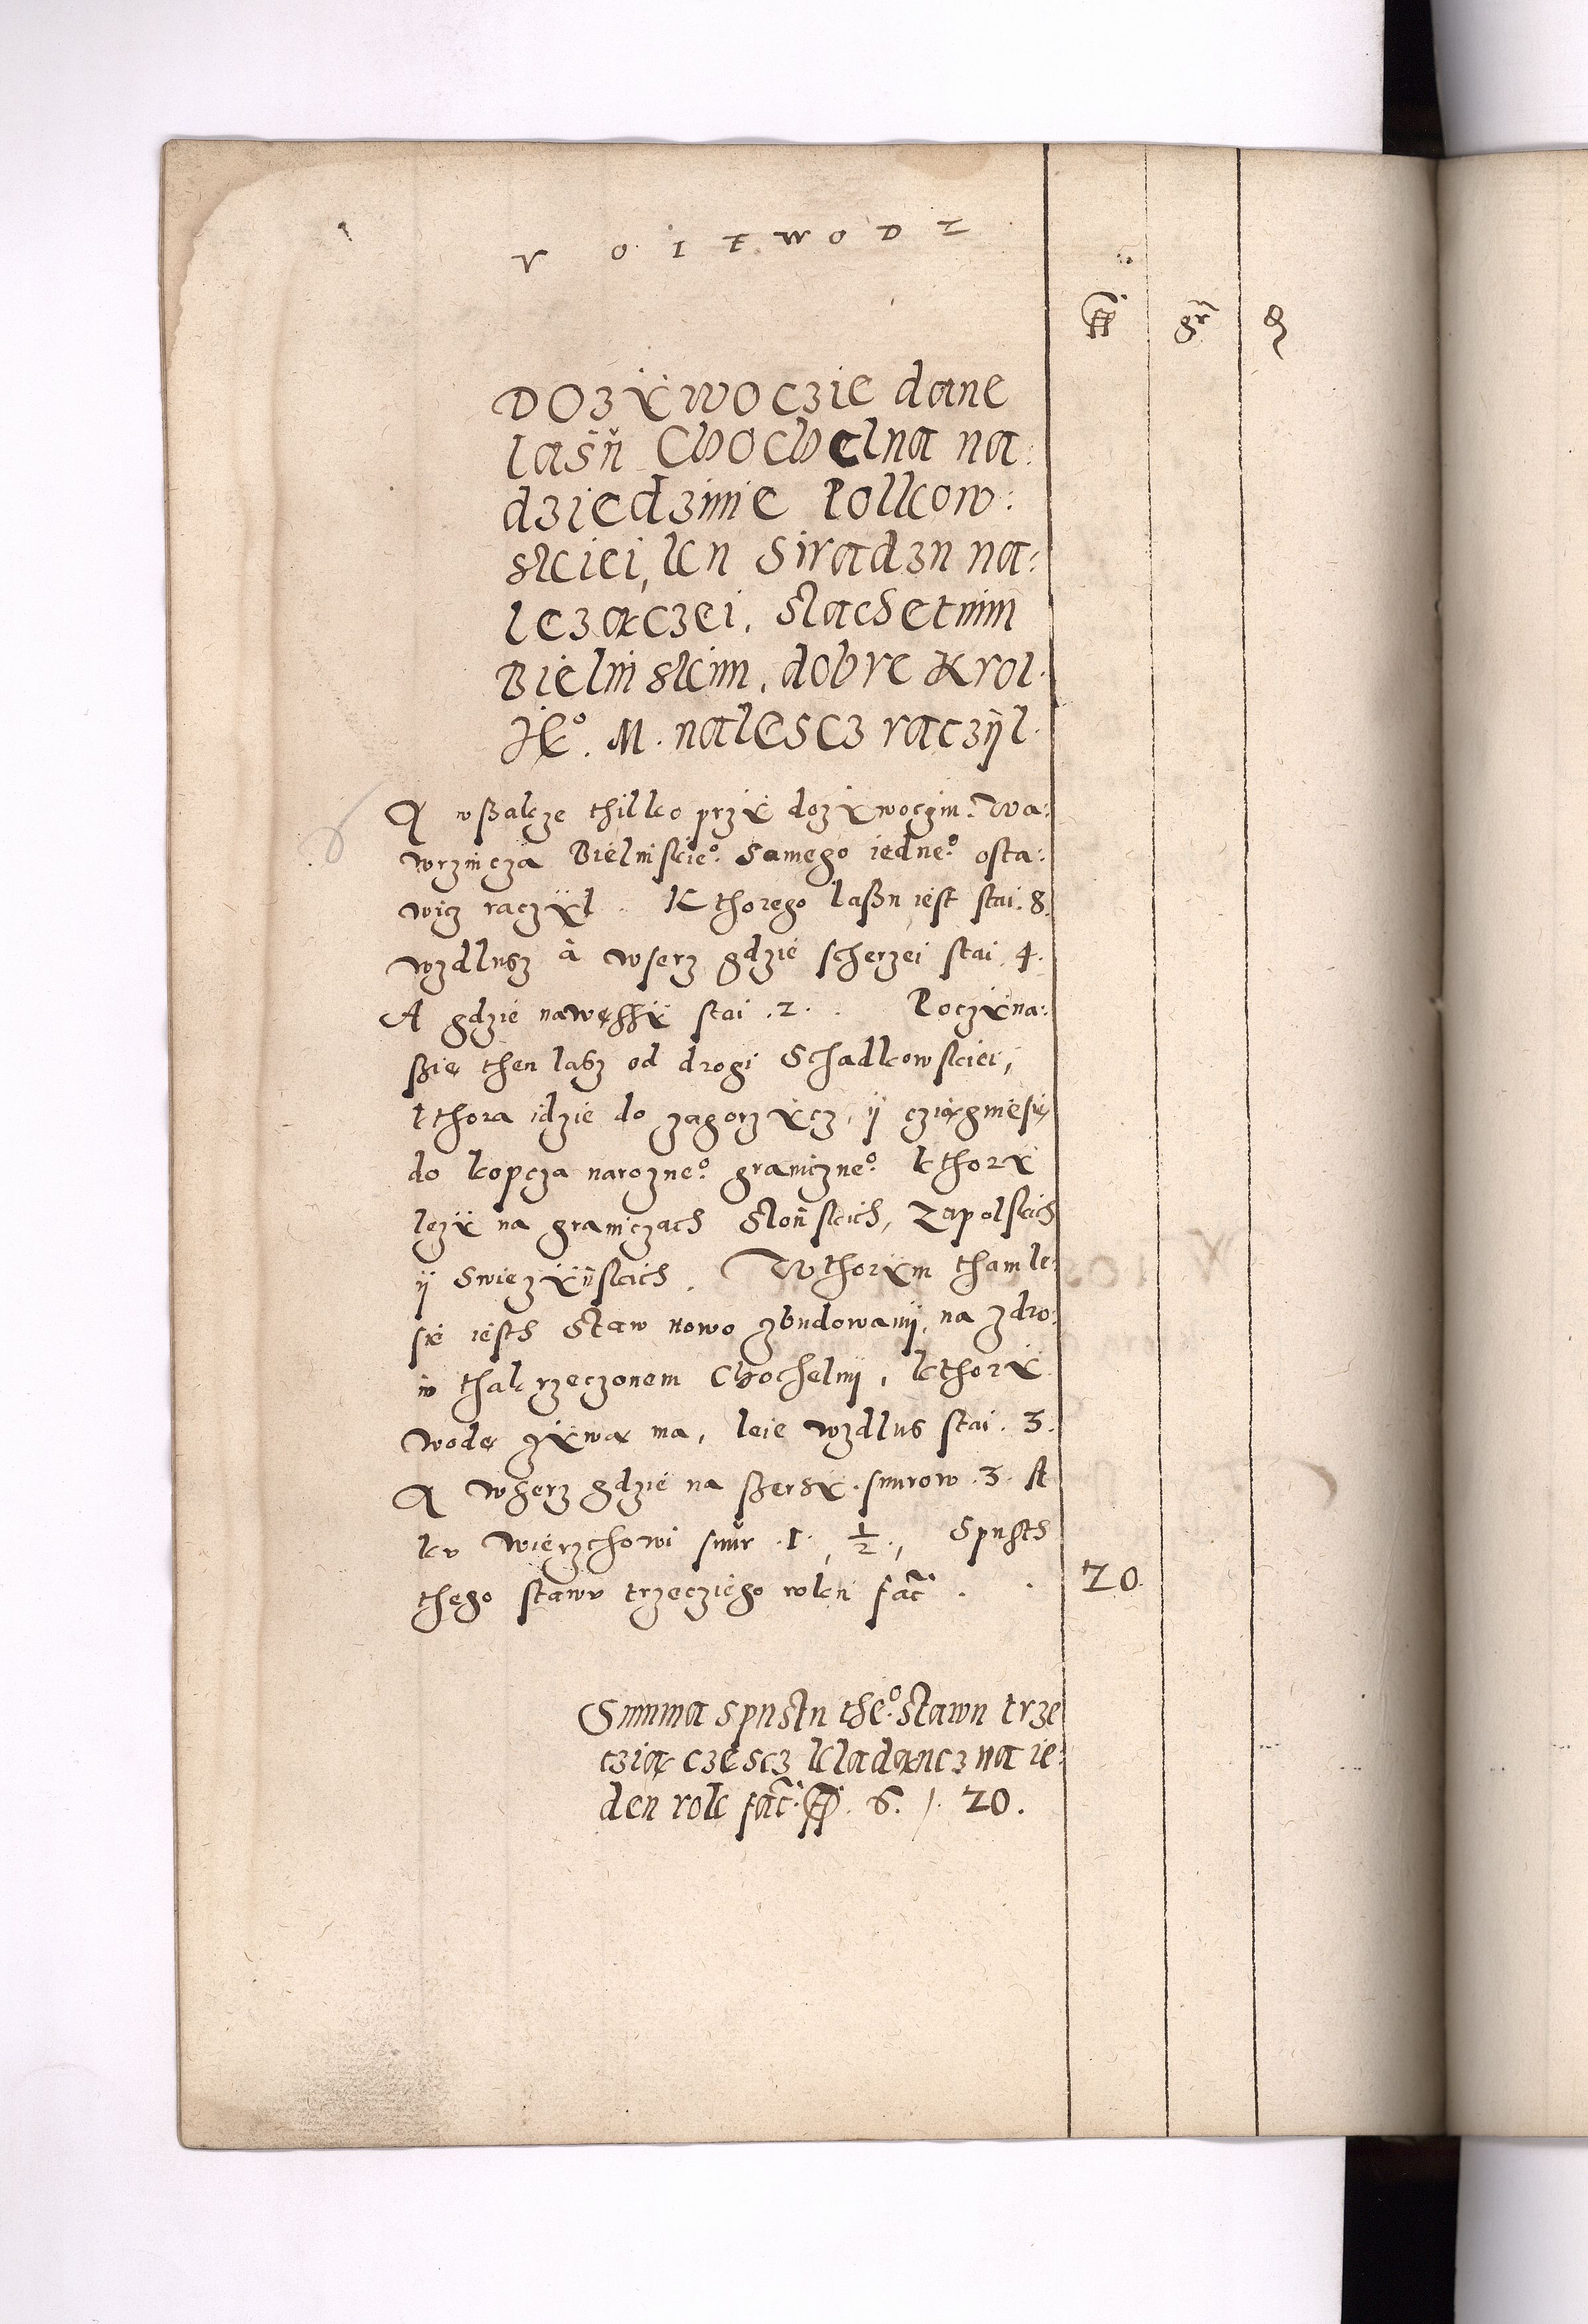 V O I E W O D Z
ff gr d
DOZẎWOCZIE dane
lasŭ Chochelna na:
dziedzinie Polkow:
skiei, ku Siradzu na:
lezączei, Slachetnim
Bielinskim, dobre Krol.
JKº. M. nalescz raczÿl.
A wßakze thilko przẏ dozẏwoczm: Wa:
wrzincza Bielinskieº. Samego iedneº osta:
wicz raczẏl. Kthorego laßu iest stai. 8.
wzdlusz à wserz gdzie scherzei stai 4.
A gdzie nawęsszẏ stai .2. Poczẏna:
ßię then lasz od drogi Schadkowskiei,
kthora idzie do zagorzẏcz, ij cziągnie się
do kopcza narozneº. graniczneº. kthorẏ
lezẏ na graniczach Slońskich, Zapolskich
ij Swiezẏńskich. Wthorẏm tham le:
sie iesth Staw nowo zbudowanij, na zdro:
iv thak rzeczonem Chochelnij, kthorẏ
wodę zẏwą ma, leie wzdlus stai. 3.
A wserz gdzie na ßersẏ. snurow .3. A
kv wierzchowi snŭr .1., 1/2., Spusth
thego stawv trzecziego roku fac̃. . 20.
Summa spustu theº. Stawu trze
czią częscz kladąncz na ie:
den rok fac̃. ff. 6. /. 20.